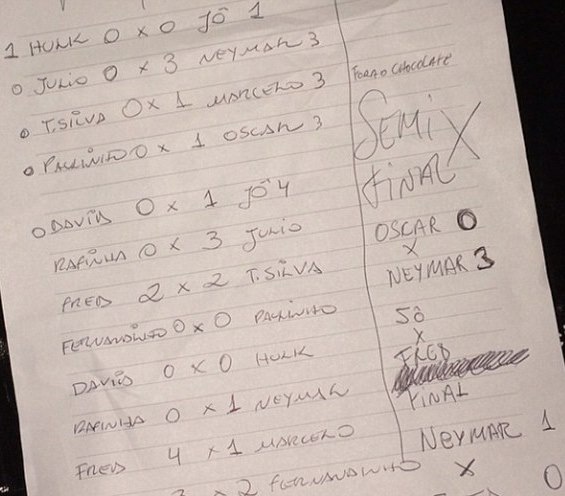 1 HULK 0 x 0 JÔ 1
0 JULIO 0 x 3 NEYMAR 3
0 T.SILVA 0 x 1 MARCELO 3
0 PAULINHO 0 x 1 OSCAR 3
0 DAVID 0 x 1 JÔ 4
RAFINHA 0 x 3 JULIO
FRED 2 x 2 T.SILVA
FERNANDINHO 0 x 0 PAULINHO
DAVID 0 x 0 HULK
RAFINHA 0 x 1 NEYMAR
FRED 4 x 1 MARCELO
x 2 FERNANDINHO
CHOCOLATE
SEMI X
FINAL
OSCAR 0
X
NEYMAR 3
JÔ
X
FRED
FINAL
NEYMAR 1
X
0